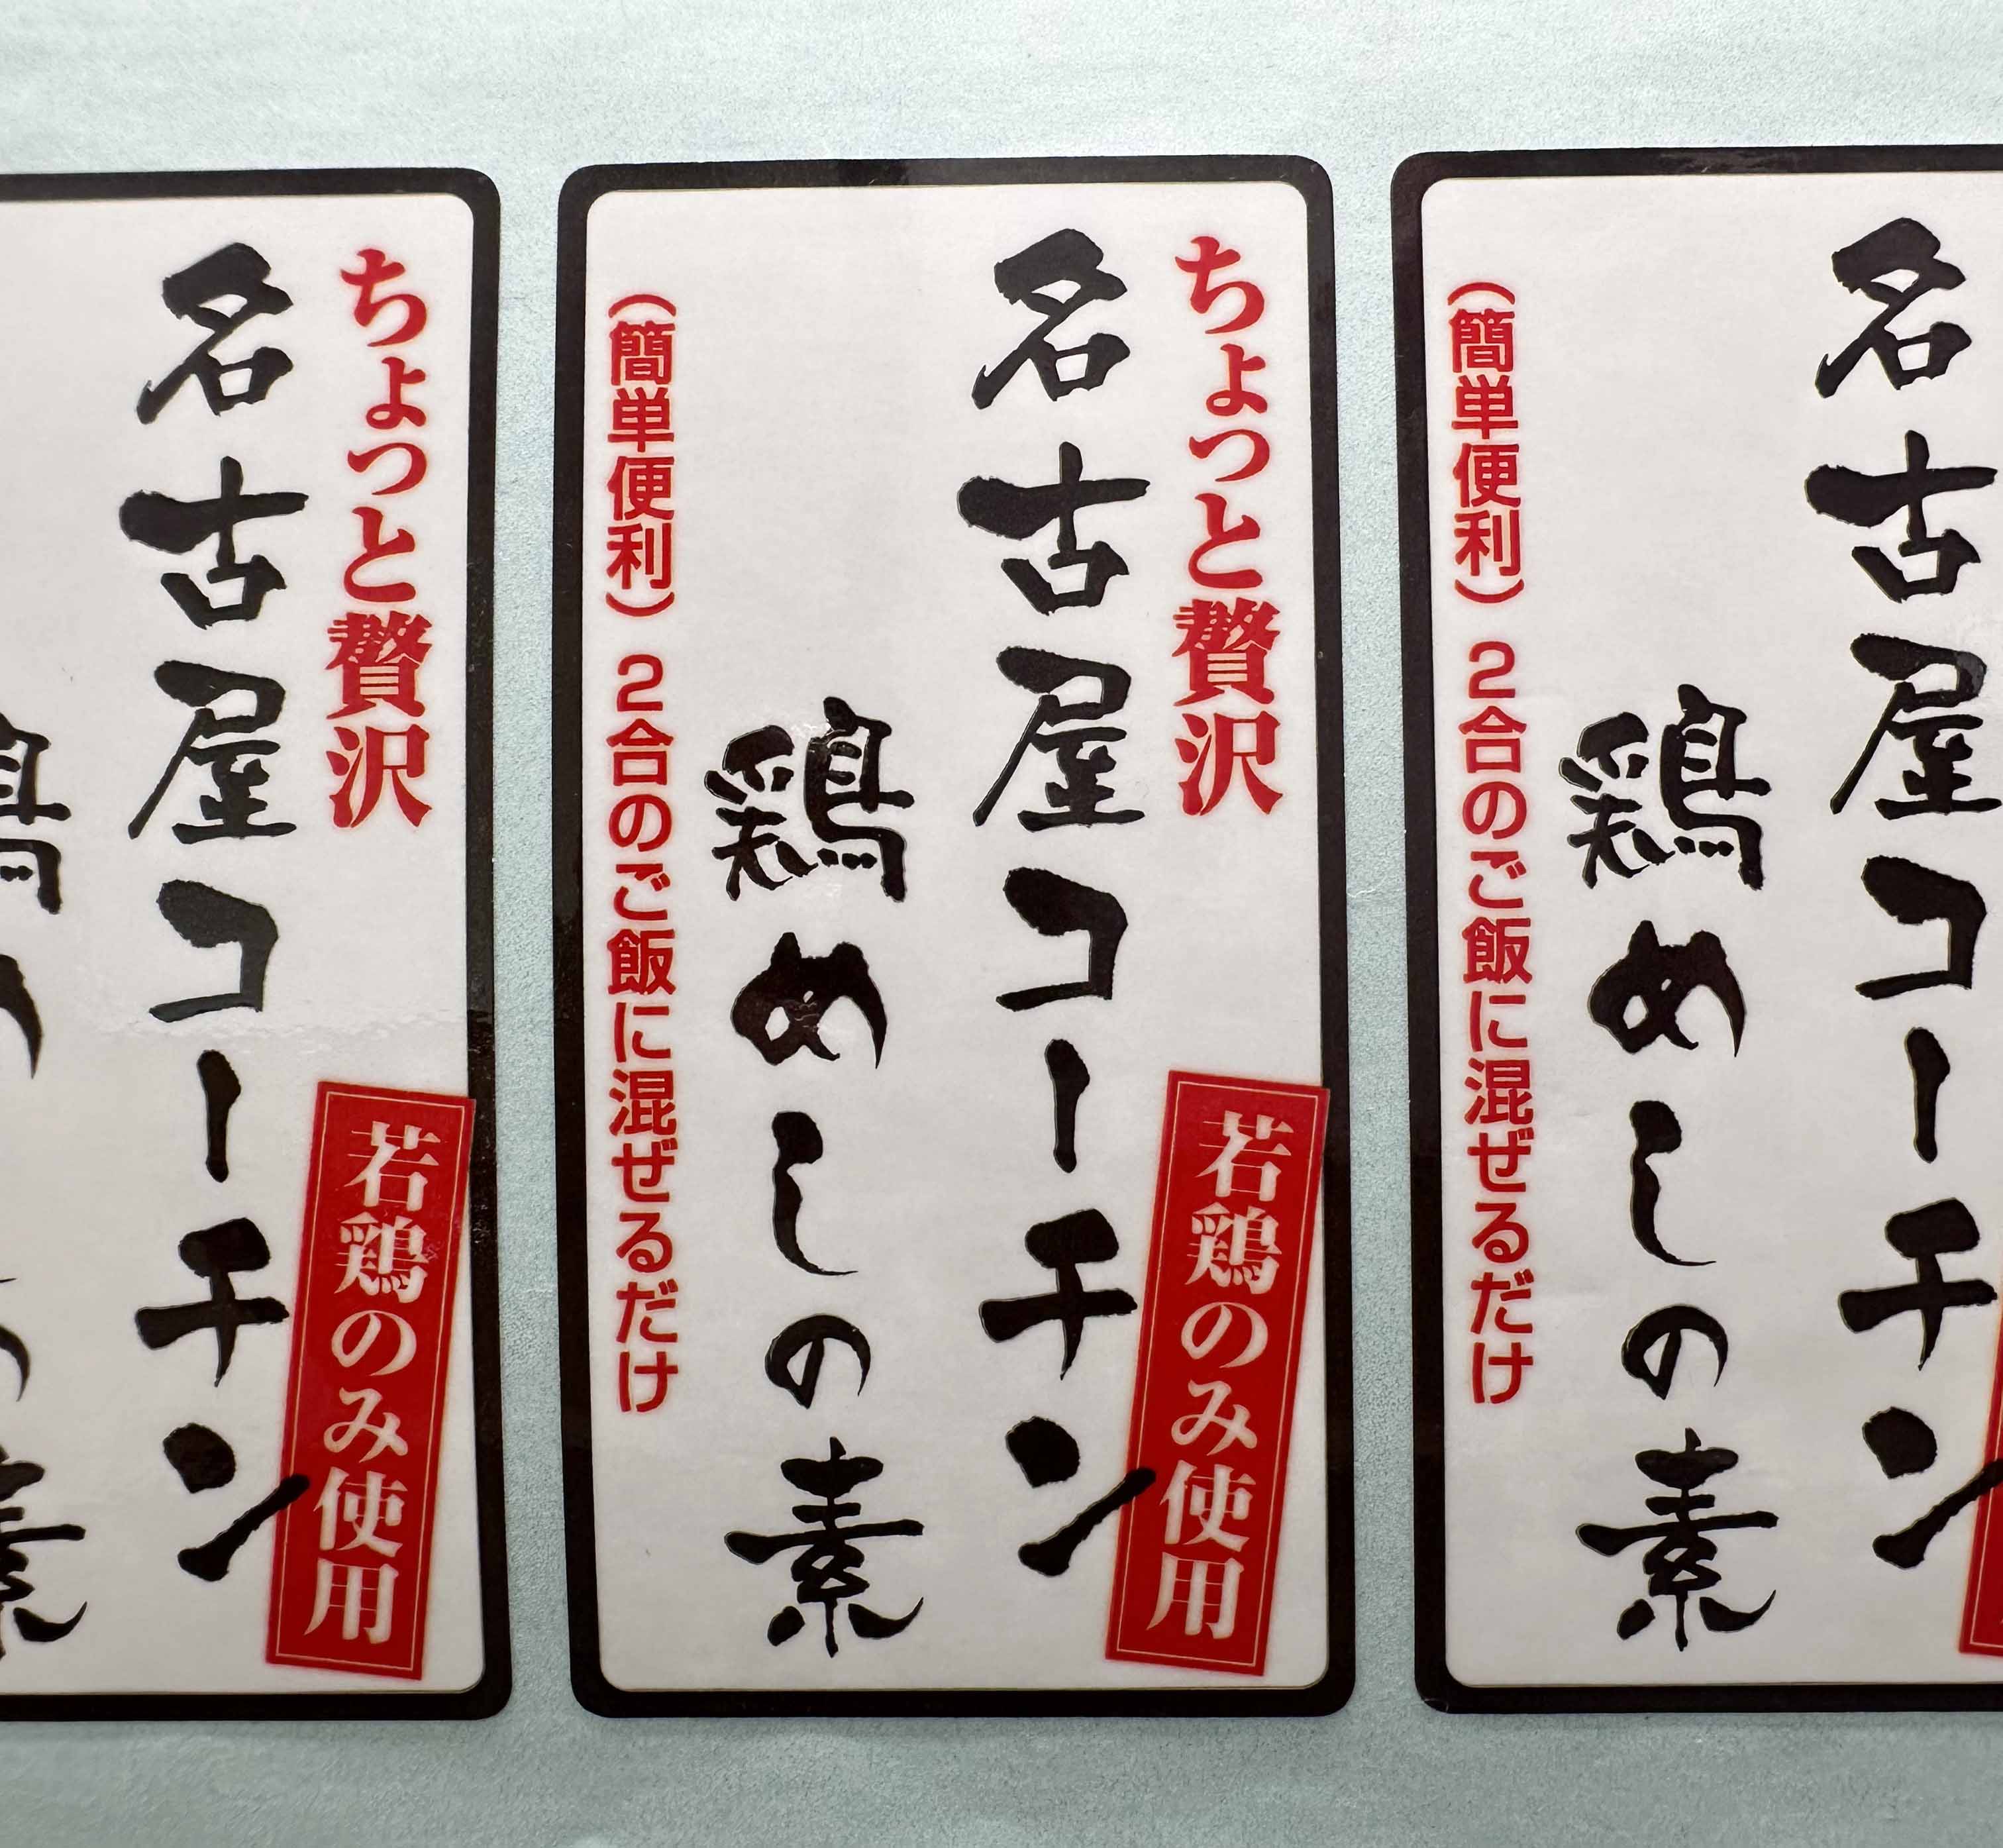 ちょっと贅沢
名古屋コーチン
若鶏のみ使用
鶏めしの素
（簡単便利）２合のご飯に混ぜるだけ
ちょっと贅沢
名古屋コーチン
若鶏のみ使用
鶏めしの素
名古屋コーチン
鶏めしの素
（簡単便利）２合のご飯に混ぜるだけ